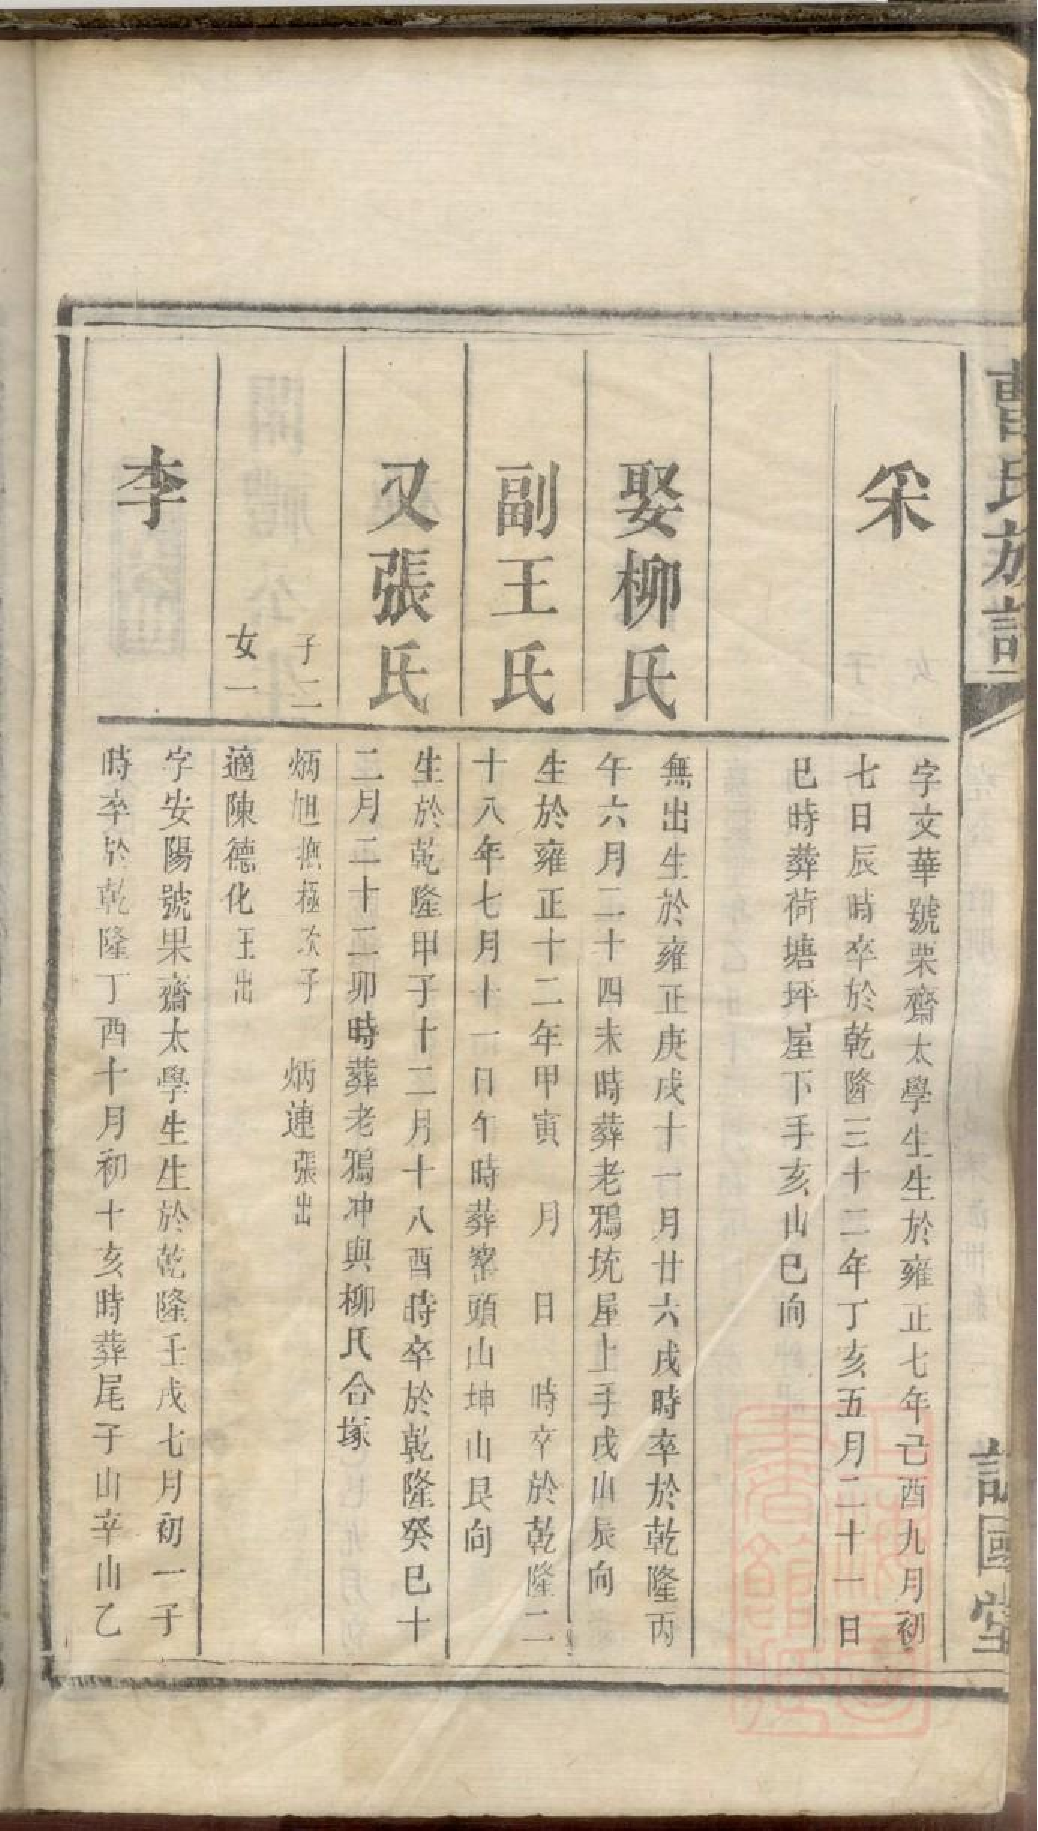 曹氏族譜
采
字文華號栗齋太學生生於雍正七年己酉九月初
七日辰時卒於乾隆三十二年丁亥五月二十一日
巳時葬荷塘坪屋下手亥山巳向
娶柳氏
無出生於雍正庚戌十一月廿六戌時卒於乾隆丙
午六月二十四未時葬老鴉坑屋上手戌山辰向
副王氏
生於雍正十二年甲寅 月 日 時卒於乾隆二
十八年七月十一日午時葬窰頭山坤山艮向
又張氏
生於乾隆甲子十二月十八酉時卒於乾隆癸巳十
二月二十二卯時葬老鴉冲與柳氏合塚
子二
炳旭撫極次子 炳連張出
女一
適陳德化王出
李
字安陽號果齋太學生生於乾隆壬戌七月初一子
時卒於乾隆丁酉十月初十亥時葬尾子山辛山乙
國堂